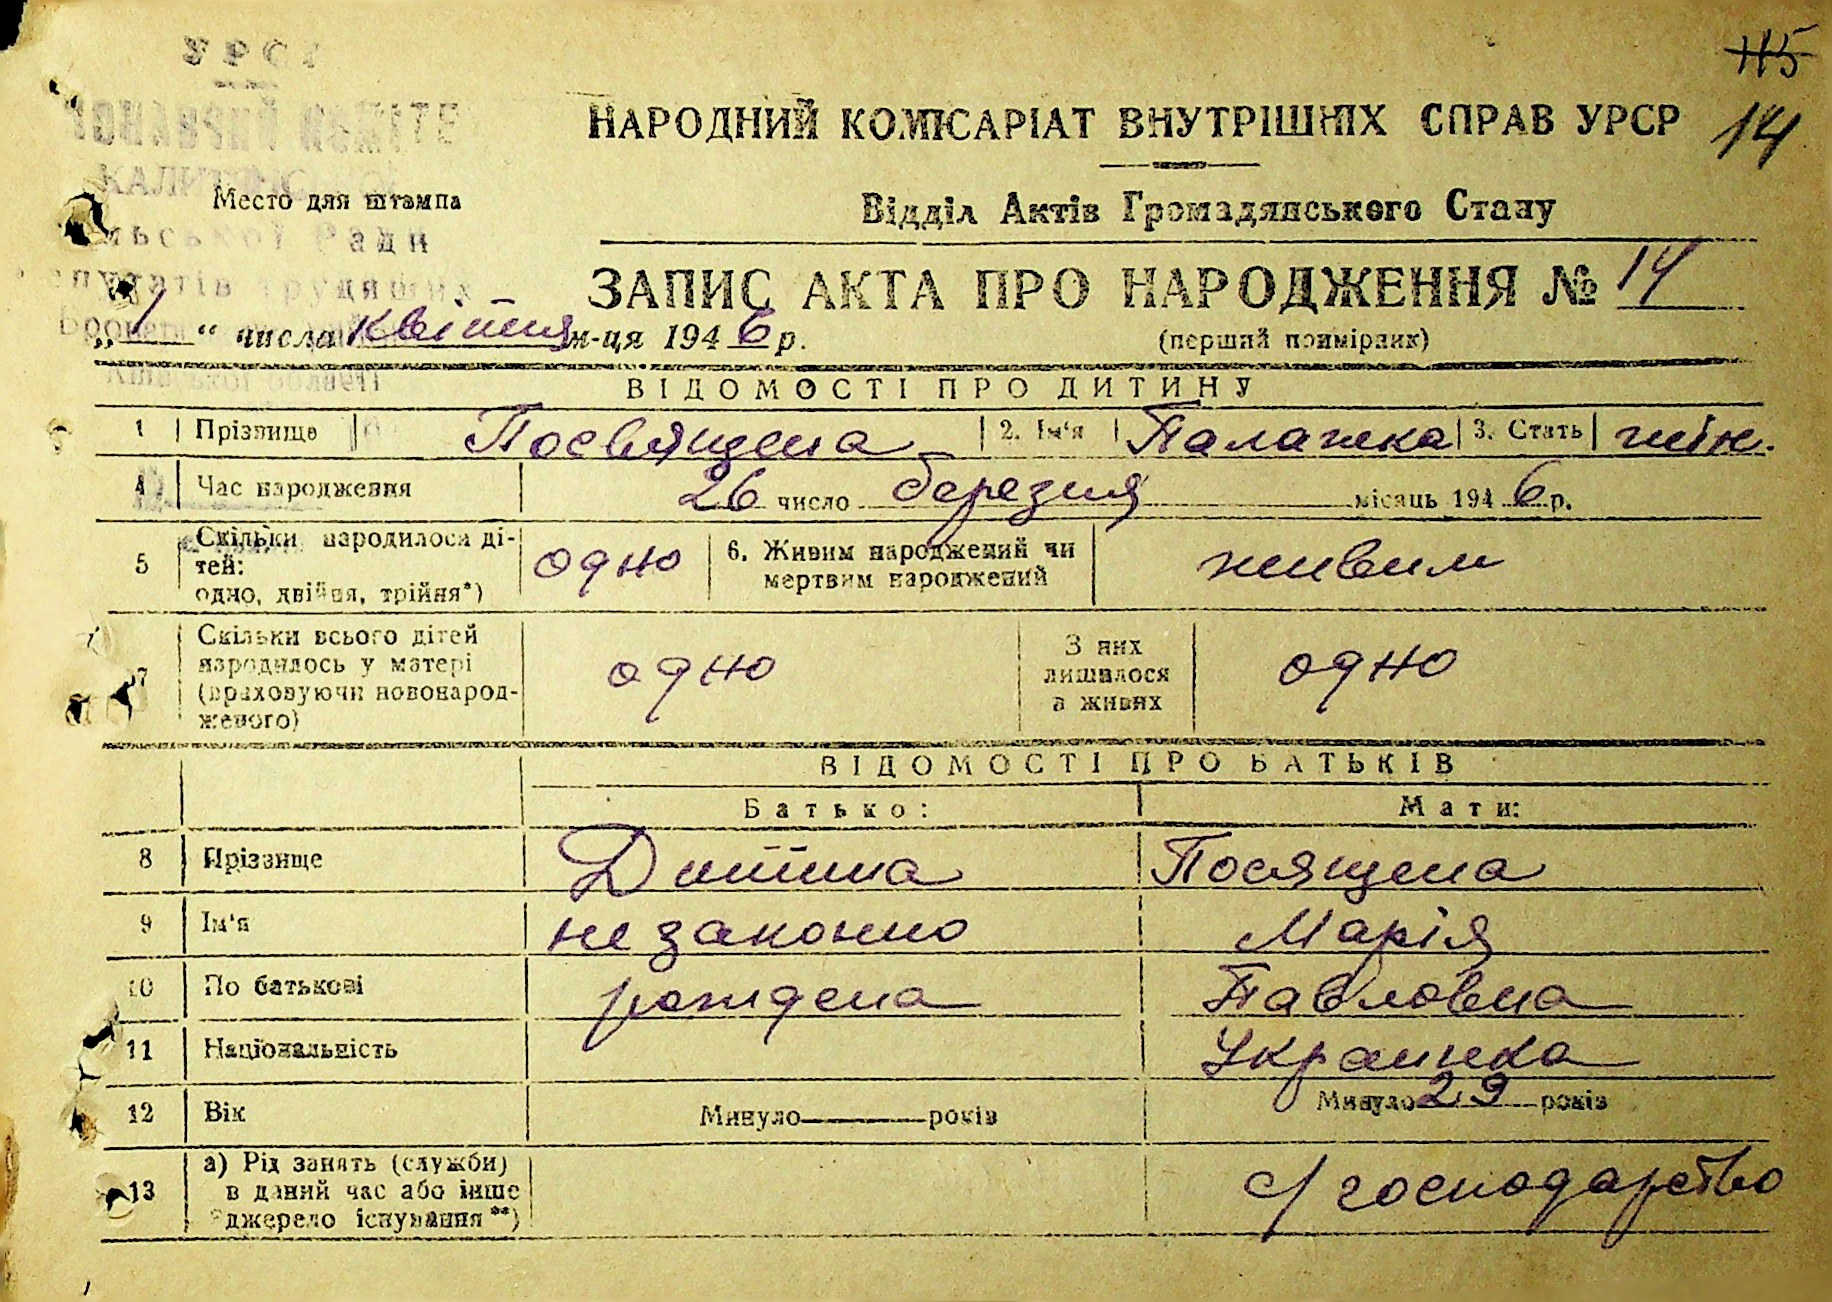 115
14
НАРОДНИЙ КОМІСАРІАТ ВНУТРІШНІХ СПРАВ УРСР
Место для штампа
Відділ Актів Громадянського Стану
ЗАПИС АКТА ПРО НАРОДЖЕННЯ № 14
„ 1 “ числа квітня м-ця 1946 р.
(перший примірник)
ВІДОМОСТІ ПРО ДИТИНУ
1 Прізвище Посвящена 2. Ім'я Палажка 3. Стать жін.
4 Час народження 26 число березня місяць 1946 р.
5 Скільки народилося дітей: одно, двійня, трійня*) одно 6. Живим народжений чи мертвим народжений живим
7 Скільки всього дітей народилось у матері (враховуючи новонародженого) одно З них лишилося в живих одно
ВІДОМОСТІ ПРО БАТЬКІВ
Батько: Мати:
8 Прізвище Дитина Посящена
9 Ім'я незаконно Марія
10 По батькові рождена Павловна
11 Національність Украинка
12 Вік Минуло років Минуло 29 років
13 а) Рід занять (служби) в даний час або інше джерело існування**) с/господарство